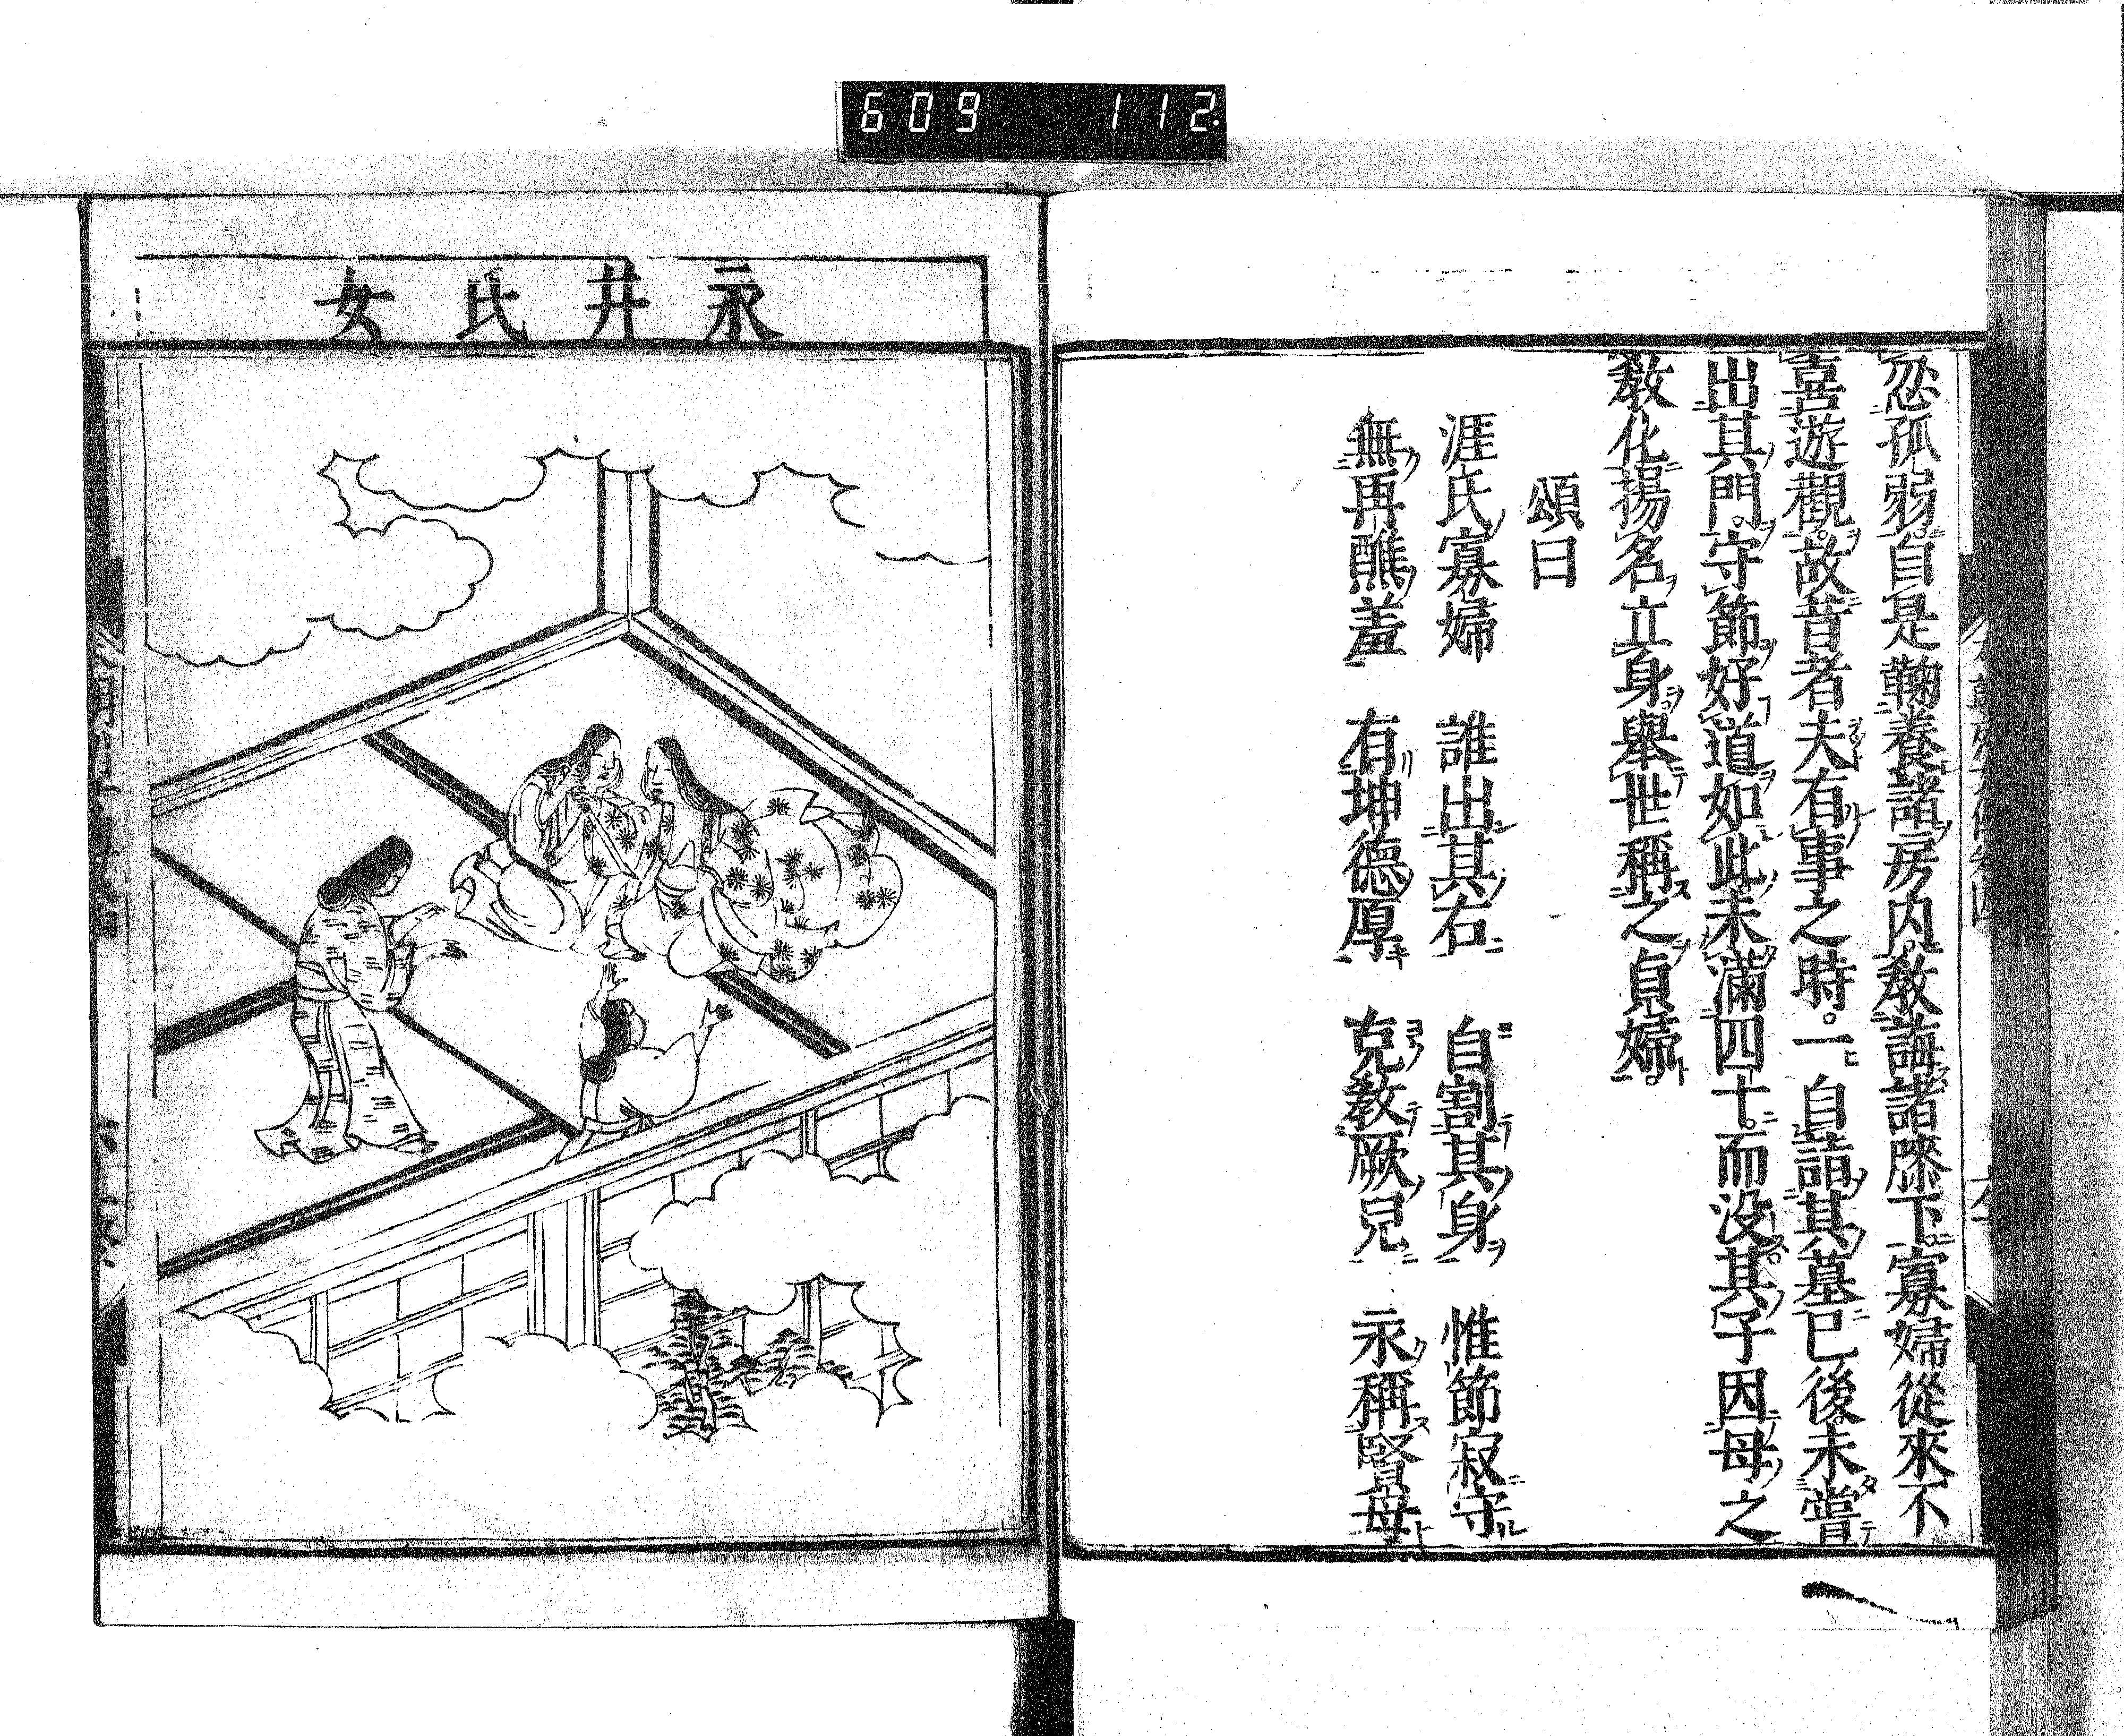 609 112
忍孤弱自是鞠養諸房内教誨諸膝下寡婦從來不
喜遊觀。故昔者夫有事之時。一自詣其墓已後未嘗
出其門。守節好道如此未滿四十。而没其子因母之
教化揚名立身擧世稱之貞婦。
頌曰
涯氏寡婦 誰出其右 自割其身 惟節寂守
無再醮羞 有坤德厚 克教厥兒 永稱賢母
永井氏女